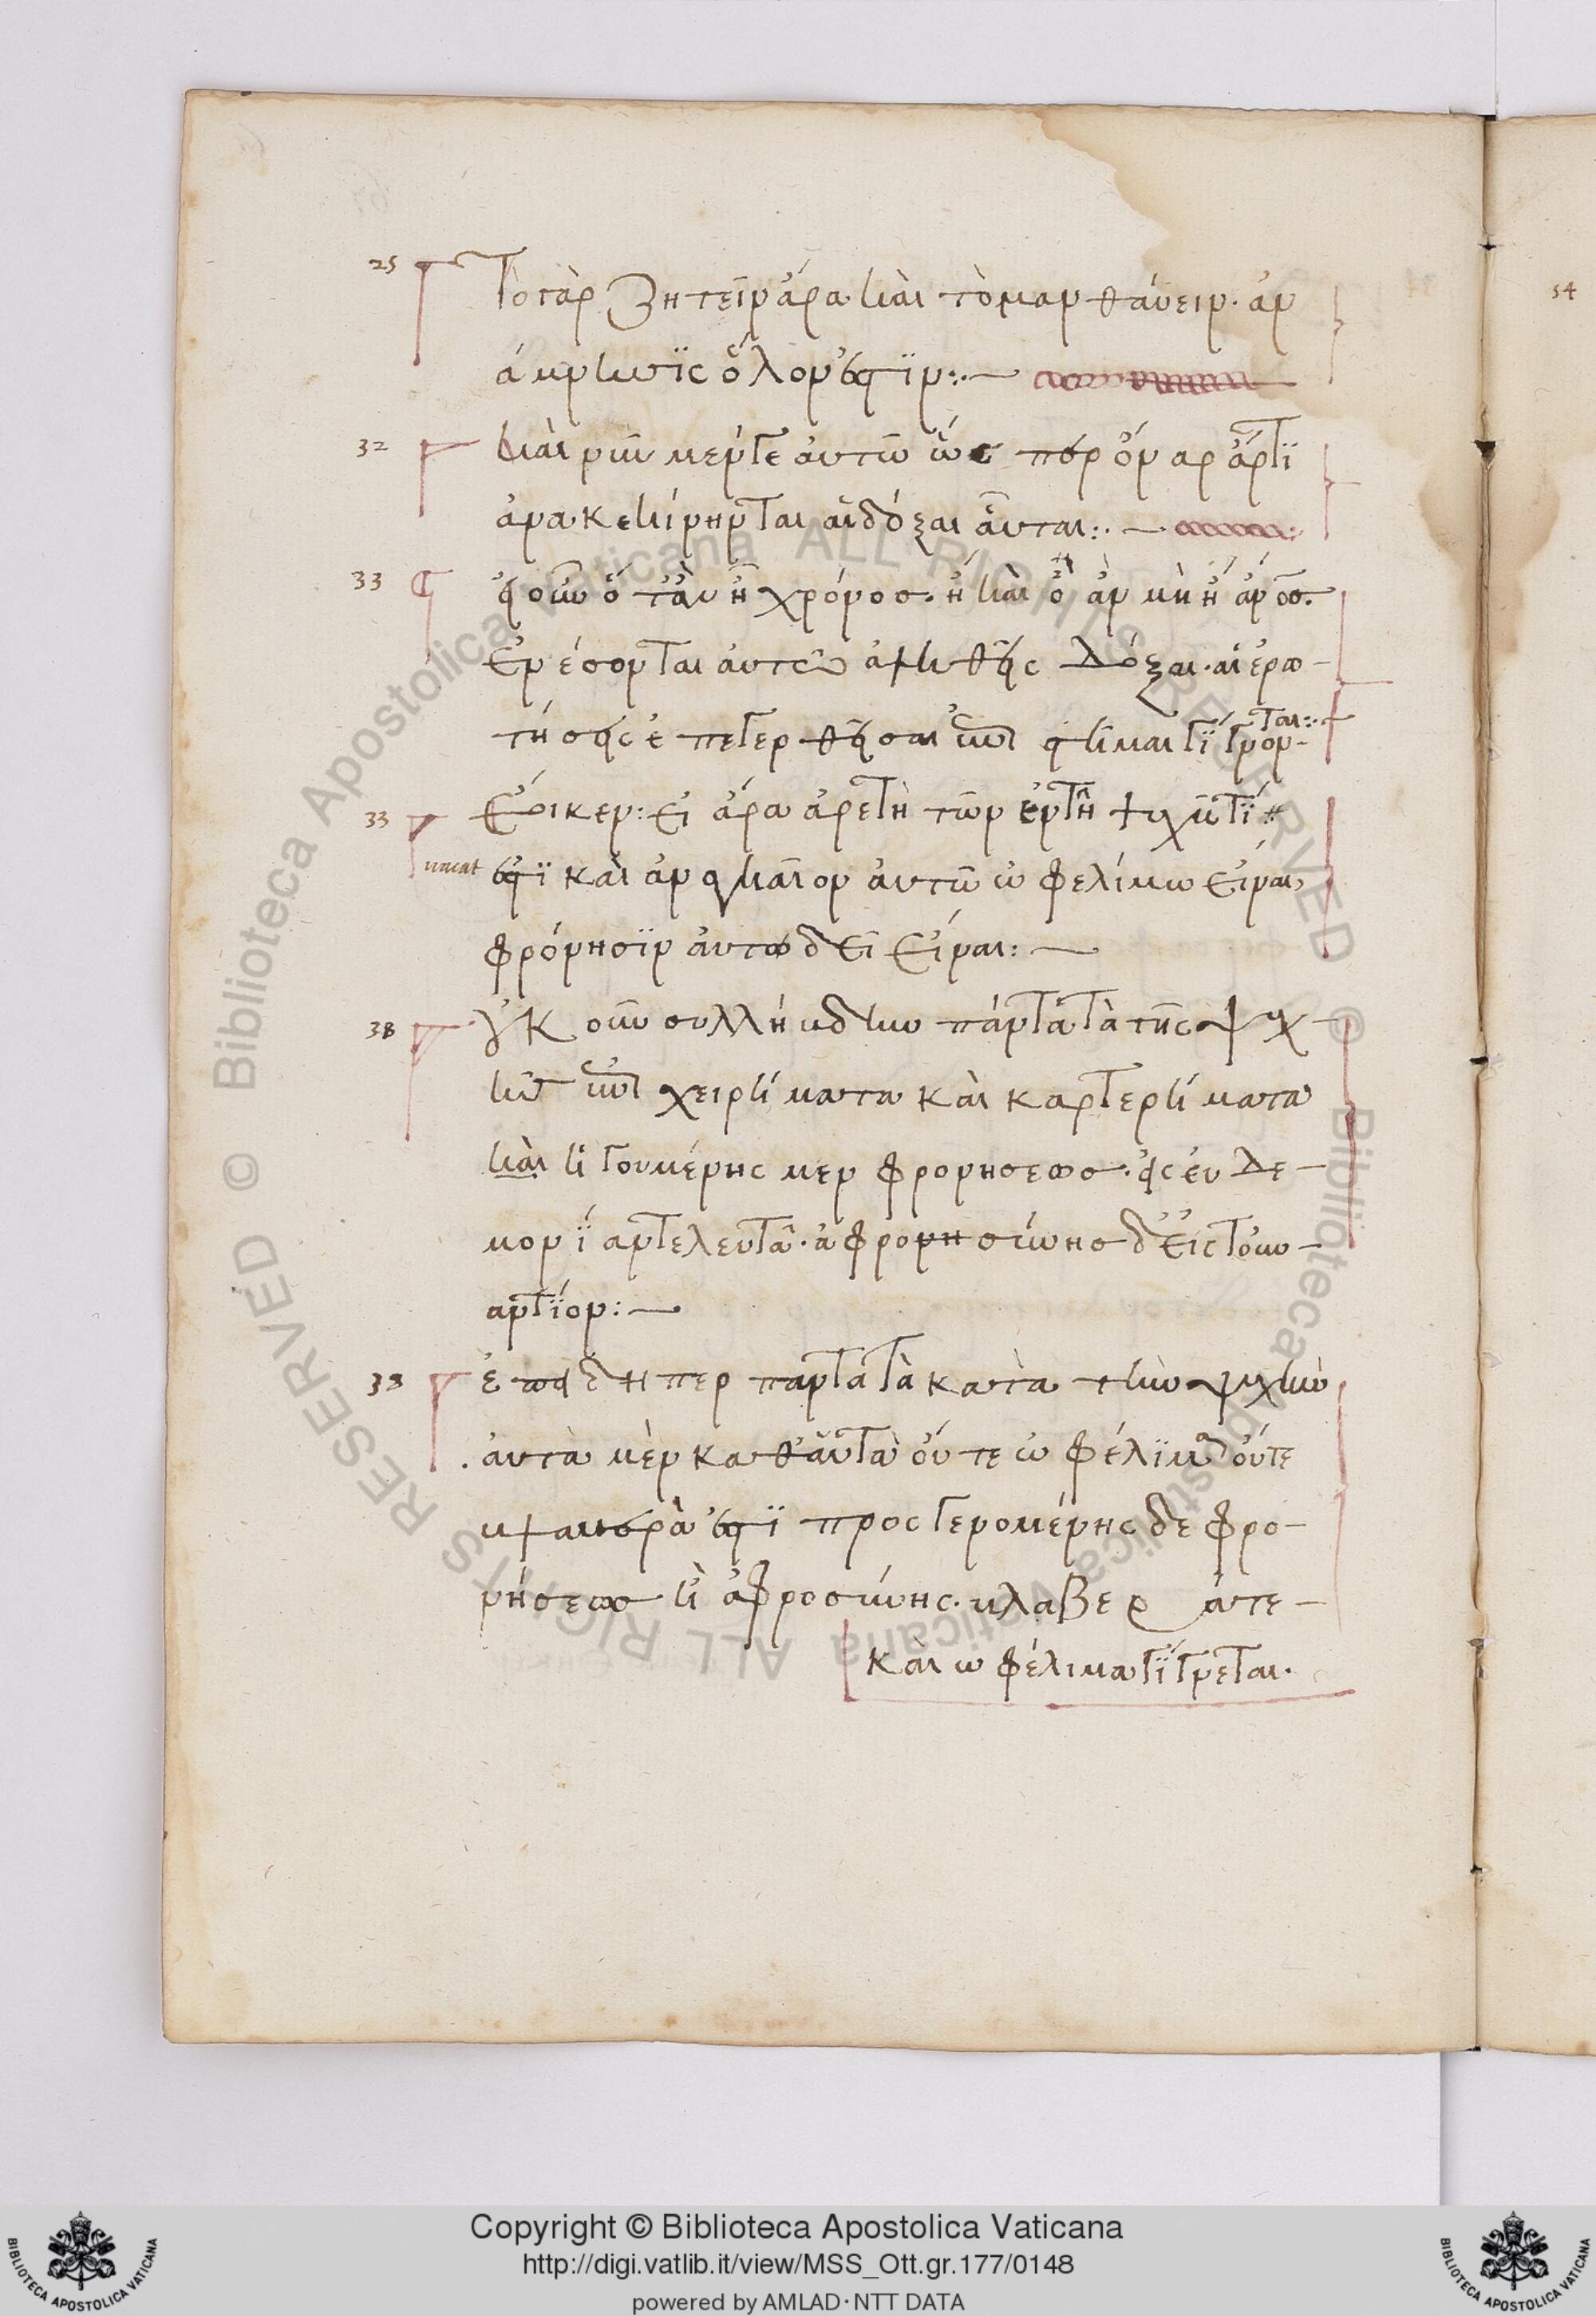 25
Τὸ γὰρ ζητεῖν ἄρα καὶ τὸ μανθάνειν. ἀν
άμνησις ὅλον ἐστὶν:—
32
καὶ νῦν μέν γε αὐτῶ ὥσπερ ὄναρ ἄρτι
ἀνακεκίνηνται αἱ δόξαι αὗται:—
33
εἰ οὖν ὅτ' ἂν ἦ χρόνος. ἢ καὶ ὃ ἂν μὴ ἦ ἄνος.
ἐνέσονται αὐτῶ ἀληθεῖς δόξαι. αἳ ἐρω-
τήσεις ἐπεγερθεῖσαι ἐπιστῆμαι γίγνον-
ται:
33
Ἔοικεν: εἰ ἄρα ἀρετὴ τῶν ἐν τῆ ψυχῆ τί
uacat
ἐστι καὶ ἀναγκαῖον αὐτῶ ὠφελίμω εἶναι
φρόνησιν αὐτὸ δεῖ εἶναι:—
38
οὐκοῦν συλλήβδην πάντα τὰ τῆς ψυχ-
ῆς ἐπιχειρήματα καὶ καρτερήματα
καὶ ἡγουμένης μὲν φρονήσεως. εἰς εὐδε-
μονίαν τελευτᾶ. ἀφρονησύνης δ' εἰς τοὐν-
αντίον:—
38
ἐπειδήπερ πάντα τὰ κατὰ τὴν ψυχὴν
αὐτὰ μὲν καθ' αὑτὰ οὔτε ὠφέλιμα οὔτε
βλαβερὰ ἐστι προσγενομένης δὲ φρο-
νήσεως ἢ ἀφροσύνης. βλαβερά τε-
καὶ ὠφέλιμα γίγνεται.
54
Copyright © Biblioteca Apostolica Vaticana
http://digi.vatlib.it/view/MSS_Ott.gr.177/0148
powered by AMLAD·NTT DATA